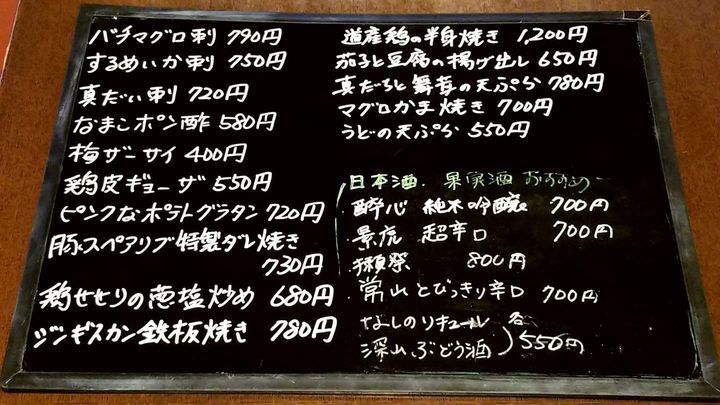 バチマグロ刺 790円
するめいか刺 750円
真だい刺 720円
なまこポン酢 580円
梅ザーサイ 400円
鶏皮ギョーザ 550円
ピンクなポテトグラタン 720円
豚スペアリブ特製ダレ焼き
730円
鶏せせりの葱塩炒め 680円
ジンギスカン鉄板焼き 780円
道産鶏の半身焼き 1,200円
茄子と豆腐の揚げ出し 650円
真だちと舞茸の天ぷら 780円
マグロかま焼き 700円
うどの天ぷら 550円
日本酒・果実酒 おすすめ
酔心 純米吟醸 700円
景虎 超辛口 700円
獺祭 800円
常山 とびっきり辛口 700円
なしのリキュール 各
深山ぶどう酒 550円